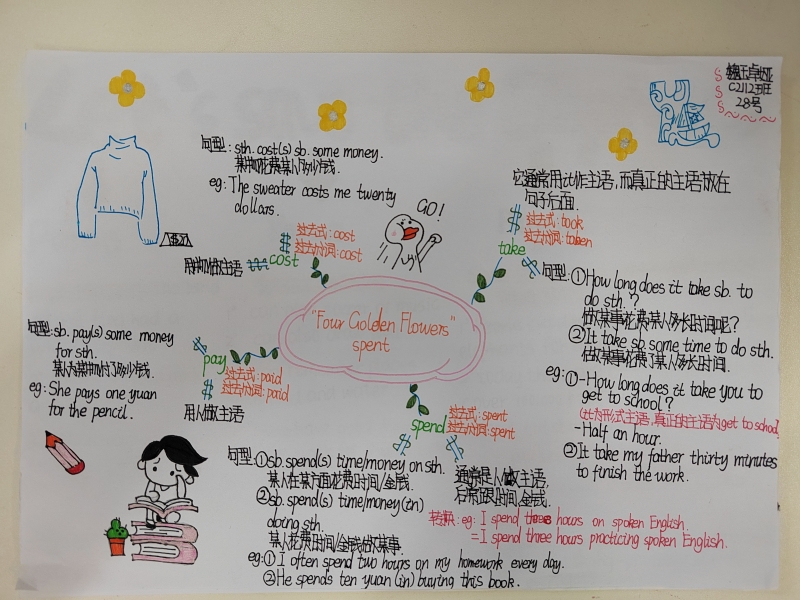 C2112班
28号
句型: sth. cost(s) sb. some money.
某物花费某人多少钱.
eg: The sweater costs me twenty
dollars.
GO!
过去式: cost
过去分词: cost
cost
用物做主语
它通常用it作主语, 而真正的主语放在
句子后面.
过去式: took
过去分词: taken
take
句型: ①How long does it take sb. to
do sth.?
做某事花费某人多长时间呢?
②It take sb. some time to do sth.
做某事花费了某人多长时间.
eg: ①-How long does it take you to
get to school?
(it为形式主语, 真正的主语为get to school)
-Half an hour.
②It take my father thirty minutes
to finish the work.
"Four Golden Flowers"
spent
句型: sb. pay(s) some money
for sth.
某人为某物付了多少钱.
eg: She pays one yuan
for the pencil.
pay
过去式: paid
过去分词: paid
用人做主语
spend
过去式: spent
过去分词: spent
通常是人做主语,
后常跟时间/金钱.
句型: ①sb. spend(s) time/money on sth.
某人在某方面花费时间/金钱.
②sb. spend(s) time/money (in)
doing sth.
某人花费时间/金钱做某事.
eg: ①I often spend two hours on my homework every day.
②He spends ten yuan (in) buying this book.
转换: eg: I spend three hours on spoken English.
=I spend three hours practicing spoken English.